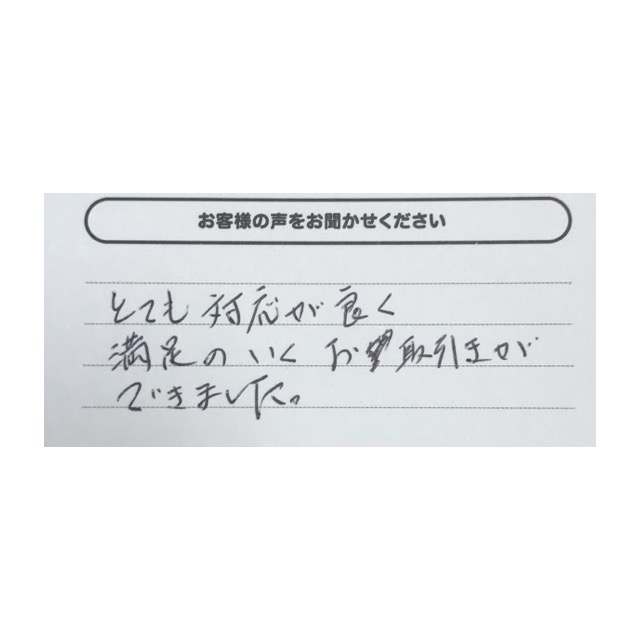 お客様の声をお聞かせください
とても対応が良く
満足のいくお取引きが
できました。